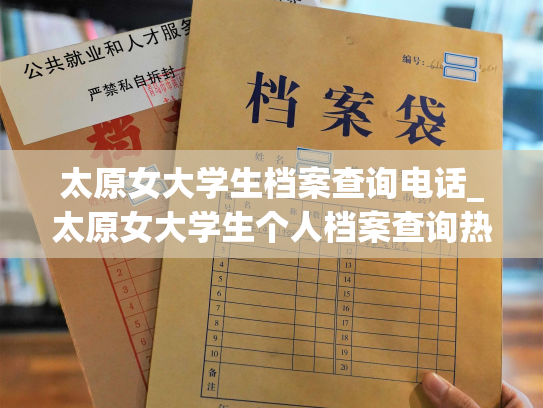 公共就业和人才服务
严禁私自拆封
编号:
档案袋
姓名
太原女大学生档案查询电话_
太原女大学生个人档案查询热
1
2
3
4
5
6
7
8
9
10
11
12
13
14
15
16
17
18
19
20
备注